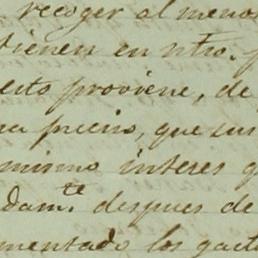 recoger al menos
tienen en ntro.
esto proviene, de
precio, que sus
mismo interes q
dam.te despues de
mentado los gasto